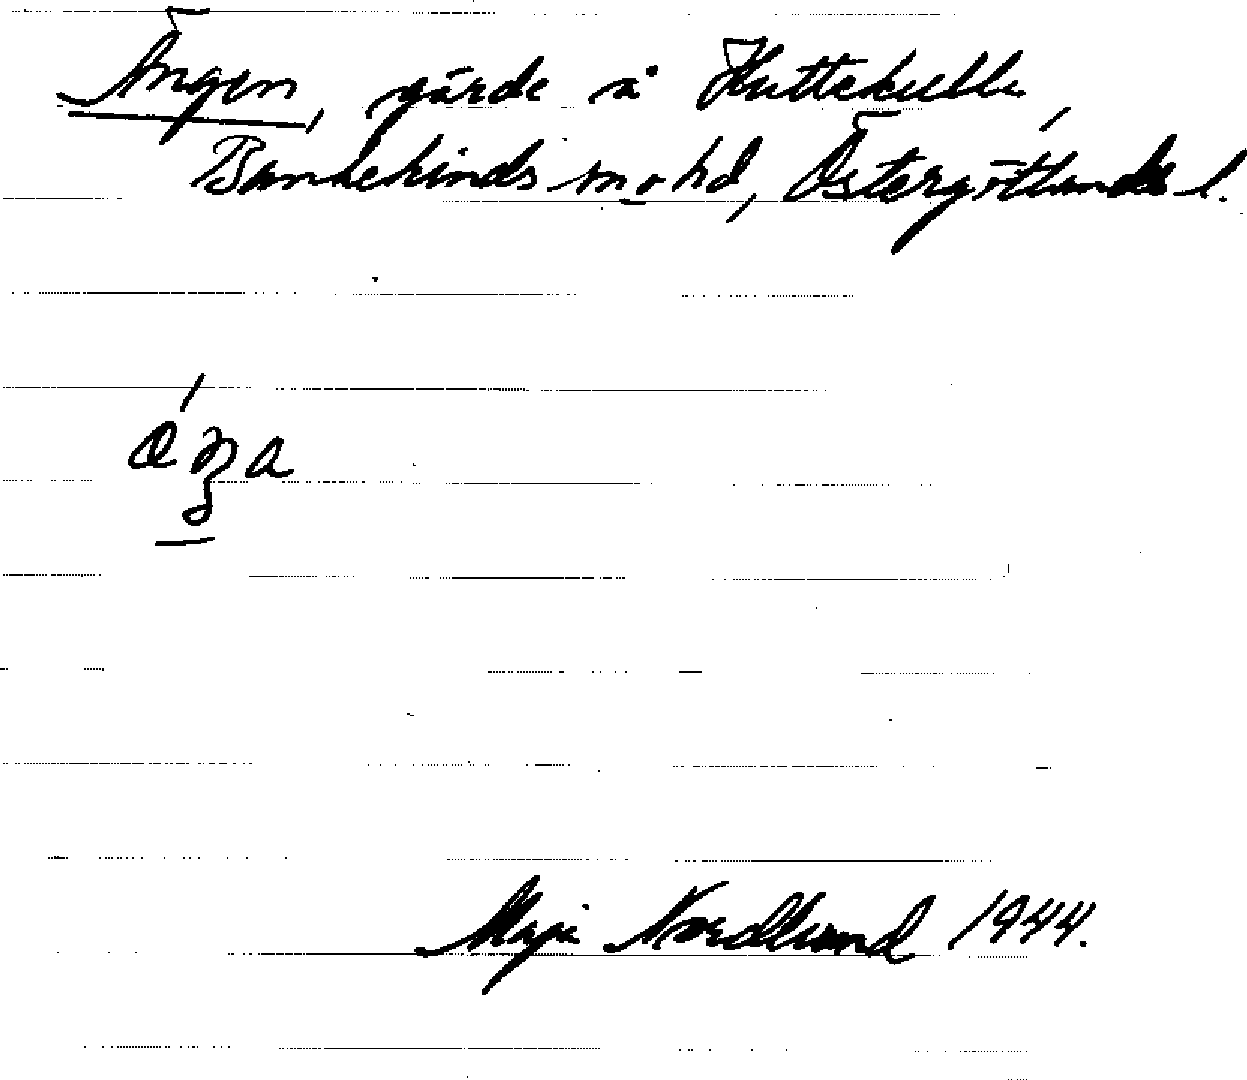 Ängen, gärde å Huttekulle,
Bankekinds sn o hd, Östergötlands l.
Maja Nordlund 1944.